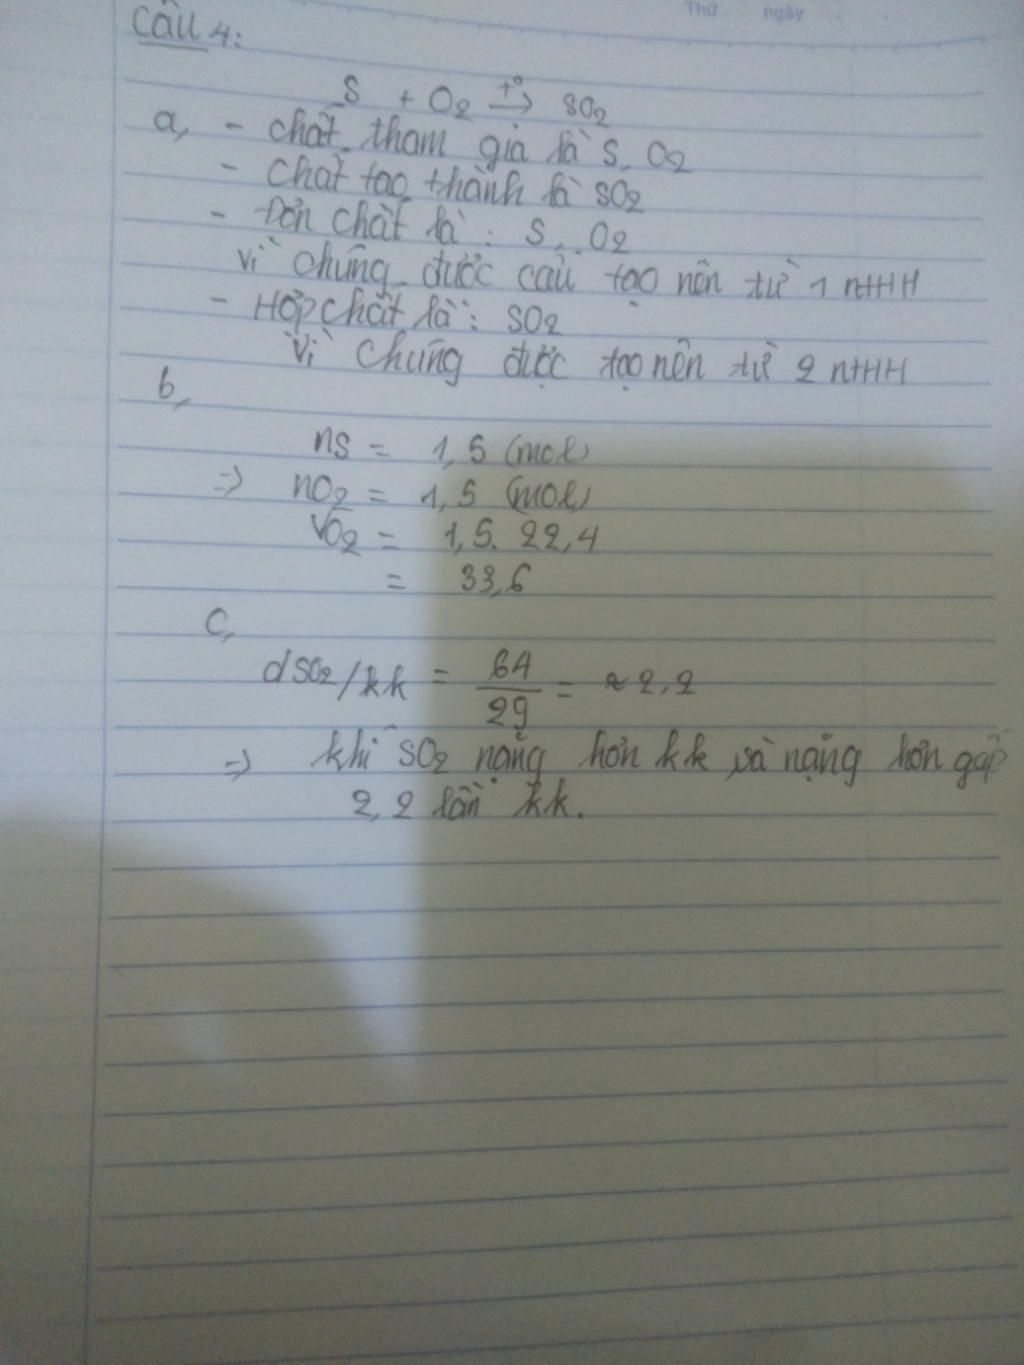 Thứ ngày
Câu 4:
S + O2 t°→ SO2
a, - chất tham gia là S, O2
- Chất tạo thành là SO2
- Đơn chất là: S, O2
Vì chúng được cấu tạo nên từ 1 NTHH
- Hợp chất là: SO2
Vì chúng được tạo nên từ 2 NTHH
b,
nS = 1,5 (mol)
=> nO2 = 1,5 (mol)
VO2 = 1,5. 22,4
= 33,6
c,
dSO2/kk = 64/29 = ≈ 2,2
=> khí SO2 nặng hơn kk và nặng hơn gấp
2,2 lần kk.